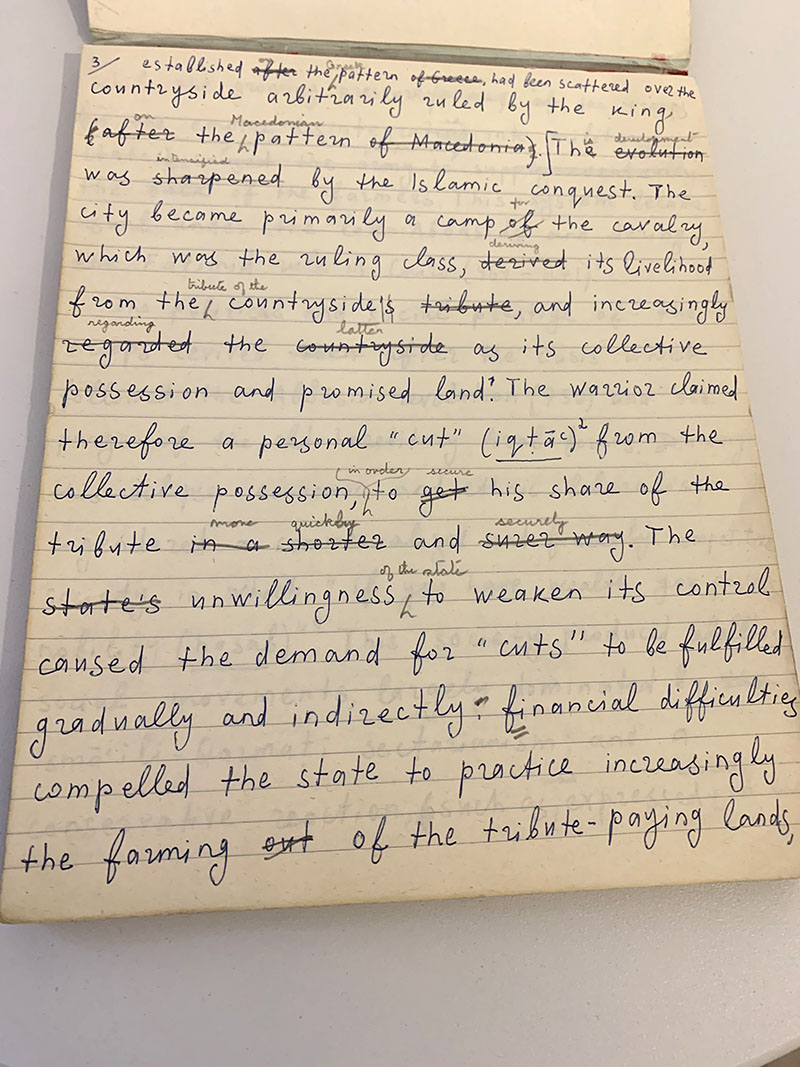 3/ established ~~after~~ the Greek pattern ~~of Greece~~, had been scattered over the
countryside arbitrarily ruled by the king
on Macedonian is development
(~~after~~ the pattern ~~of Macedonia~~). [Th ~~evolution~~
intensified
was ~~sharpened~~ by the Islamic conquest. The
for
city became primarily a camp ~~of~~ the cavalry,
deriving
which was the ruling class, ~~derived~~ its livelihood
tribute of the
from the countryside's ~~tribute~~, and increasingly
regarding latter
~~regarded~~ the ~~countryside~~ as its collective
possession and promised land.¹ The warrior claimed
therefore a personal "cut" (iqṭāᶜ)² from the
in order secure
collective possession, to ~~get~~ his share of the
more quickly securely
tribute ~~in a~~ ~~shorter~~ and ~~surer way~~. The
of the state
~~state's~~ unwillingness to weaken its control
caused the demand for "cuts" to be fulfilled
gradually and indirectly: financial difficulties
compelled the state to practice increasingly
the farming ~~out~~ of the tribute-paying lands,